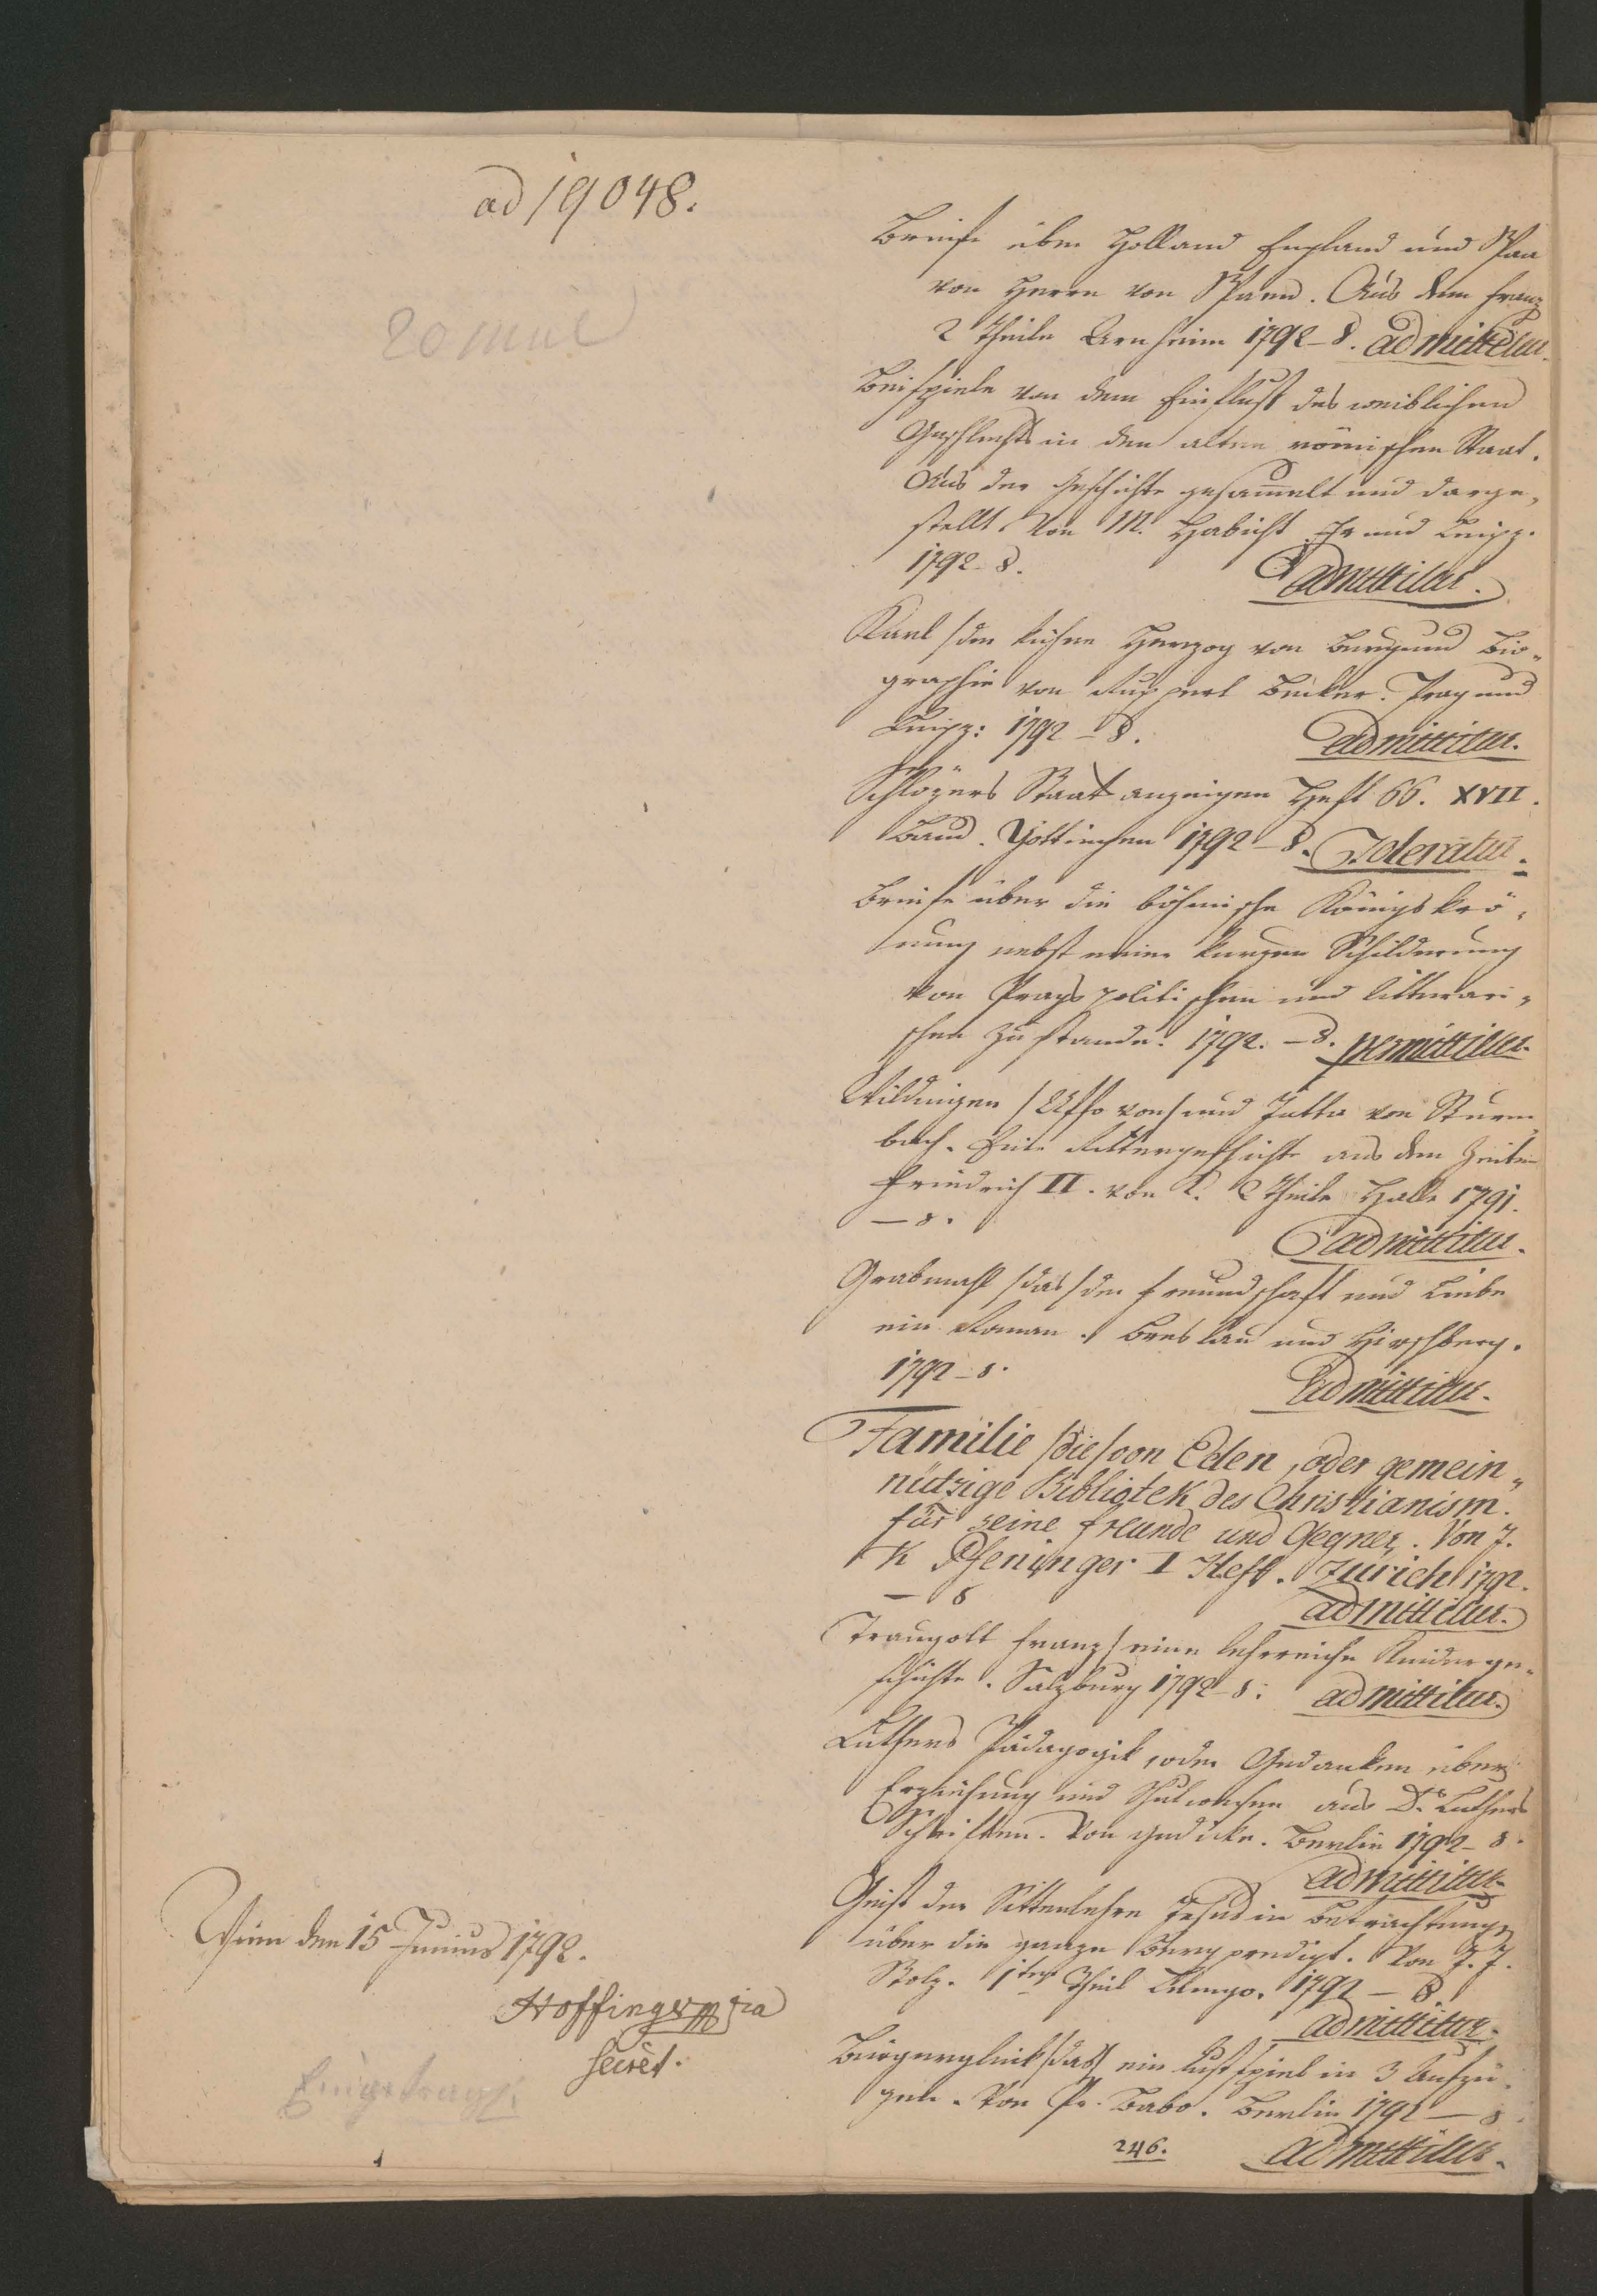 ad 19048.
20 mal
Briefe über Holland England und Spaa
von Herrn von Spann. Aus dem franz
2 Theile Arnheim 1792 – 8. admittitur.
Beispiele von dem Einfluß des weiblichen
Geschlechts in den alten römischen Staat.
Aus der Geschichte gesam̅elt und darge„
stellt von M. Habicht. und Leipz.
1792 – 8. admittitur.
Karl /der kühne Herzog von Burgund Bio„
graphie von Ruppert Becker. Prag und
Leipz: 1792 – 8. admittitur.
Schlözers Staatsanzeigen Heft 66. XVII.
Band. Göttingen 1792 – 8. Toleratur.
Briefe über die böhmische Königskrö„
nung nebst einer kurzen Schilderung
von Prags politischen und litterari„
schen Zustande. 1792. – 8. permittitur.
Wildingen /Uffo von/ und Jutta von Sturm„
bach. Eine Rittergeschichte aus den Zeiten
Friedrich II. von L. 2 Theile Halle 1791.
– 8. admittitur.
Grabmahl /das/ der Freundschaft und Liebe
ein Roman. Breslau und Hirschberg.
1792 – 8. admittitur.
Familie /die/ von Eden, oder gemein„
nützige Bibliotek des Christianism.
für seine freunde und Gegner. Von J.
K Pfeninger I Heft. Zürich 1792.
– 8 admittitur.
Traugott Franz/ eine lehrreiche Kinderge„
schichte. Salzburg 1792 – 8. admittitur.
Luthers Pädagogik, oder Gedanken über
Erziehung und Schulwesen aus Dr Luthers
Schriften. Von Gedicke. Berlin 1792 – 8.
admittitur
Geist der Sittenlehre Jesus in Betrachtungen
über die ganze Bergpredigt. Von J. J.
Stolz. 1ter Theil Lemgo. 1792 – 8.
admittitur.
Bürgerglück /das/ ein Lustspiel in 3 Aufzü„
gen. Von Pr. Babo. Berlin 1792 – 8.
246. admittitur.
Wien den 15 Junius 1792.
Hoffinger
Secret.
Eingetragen